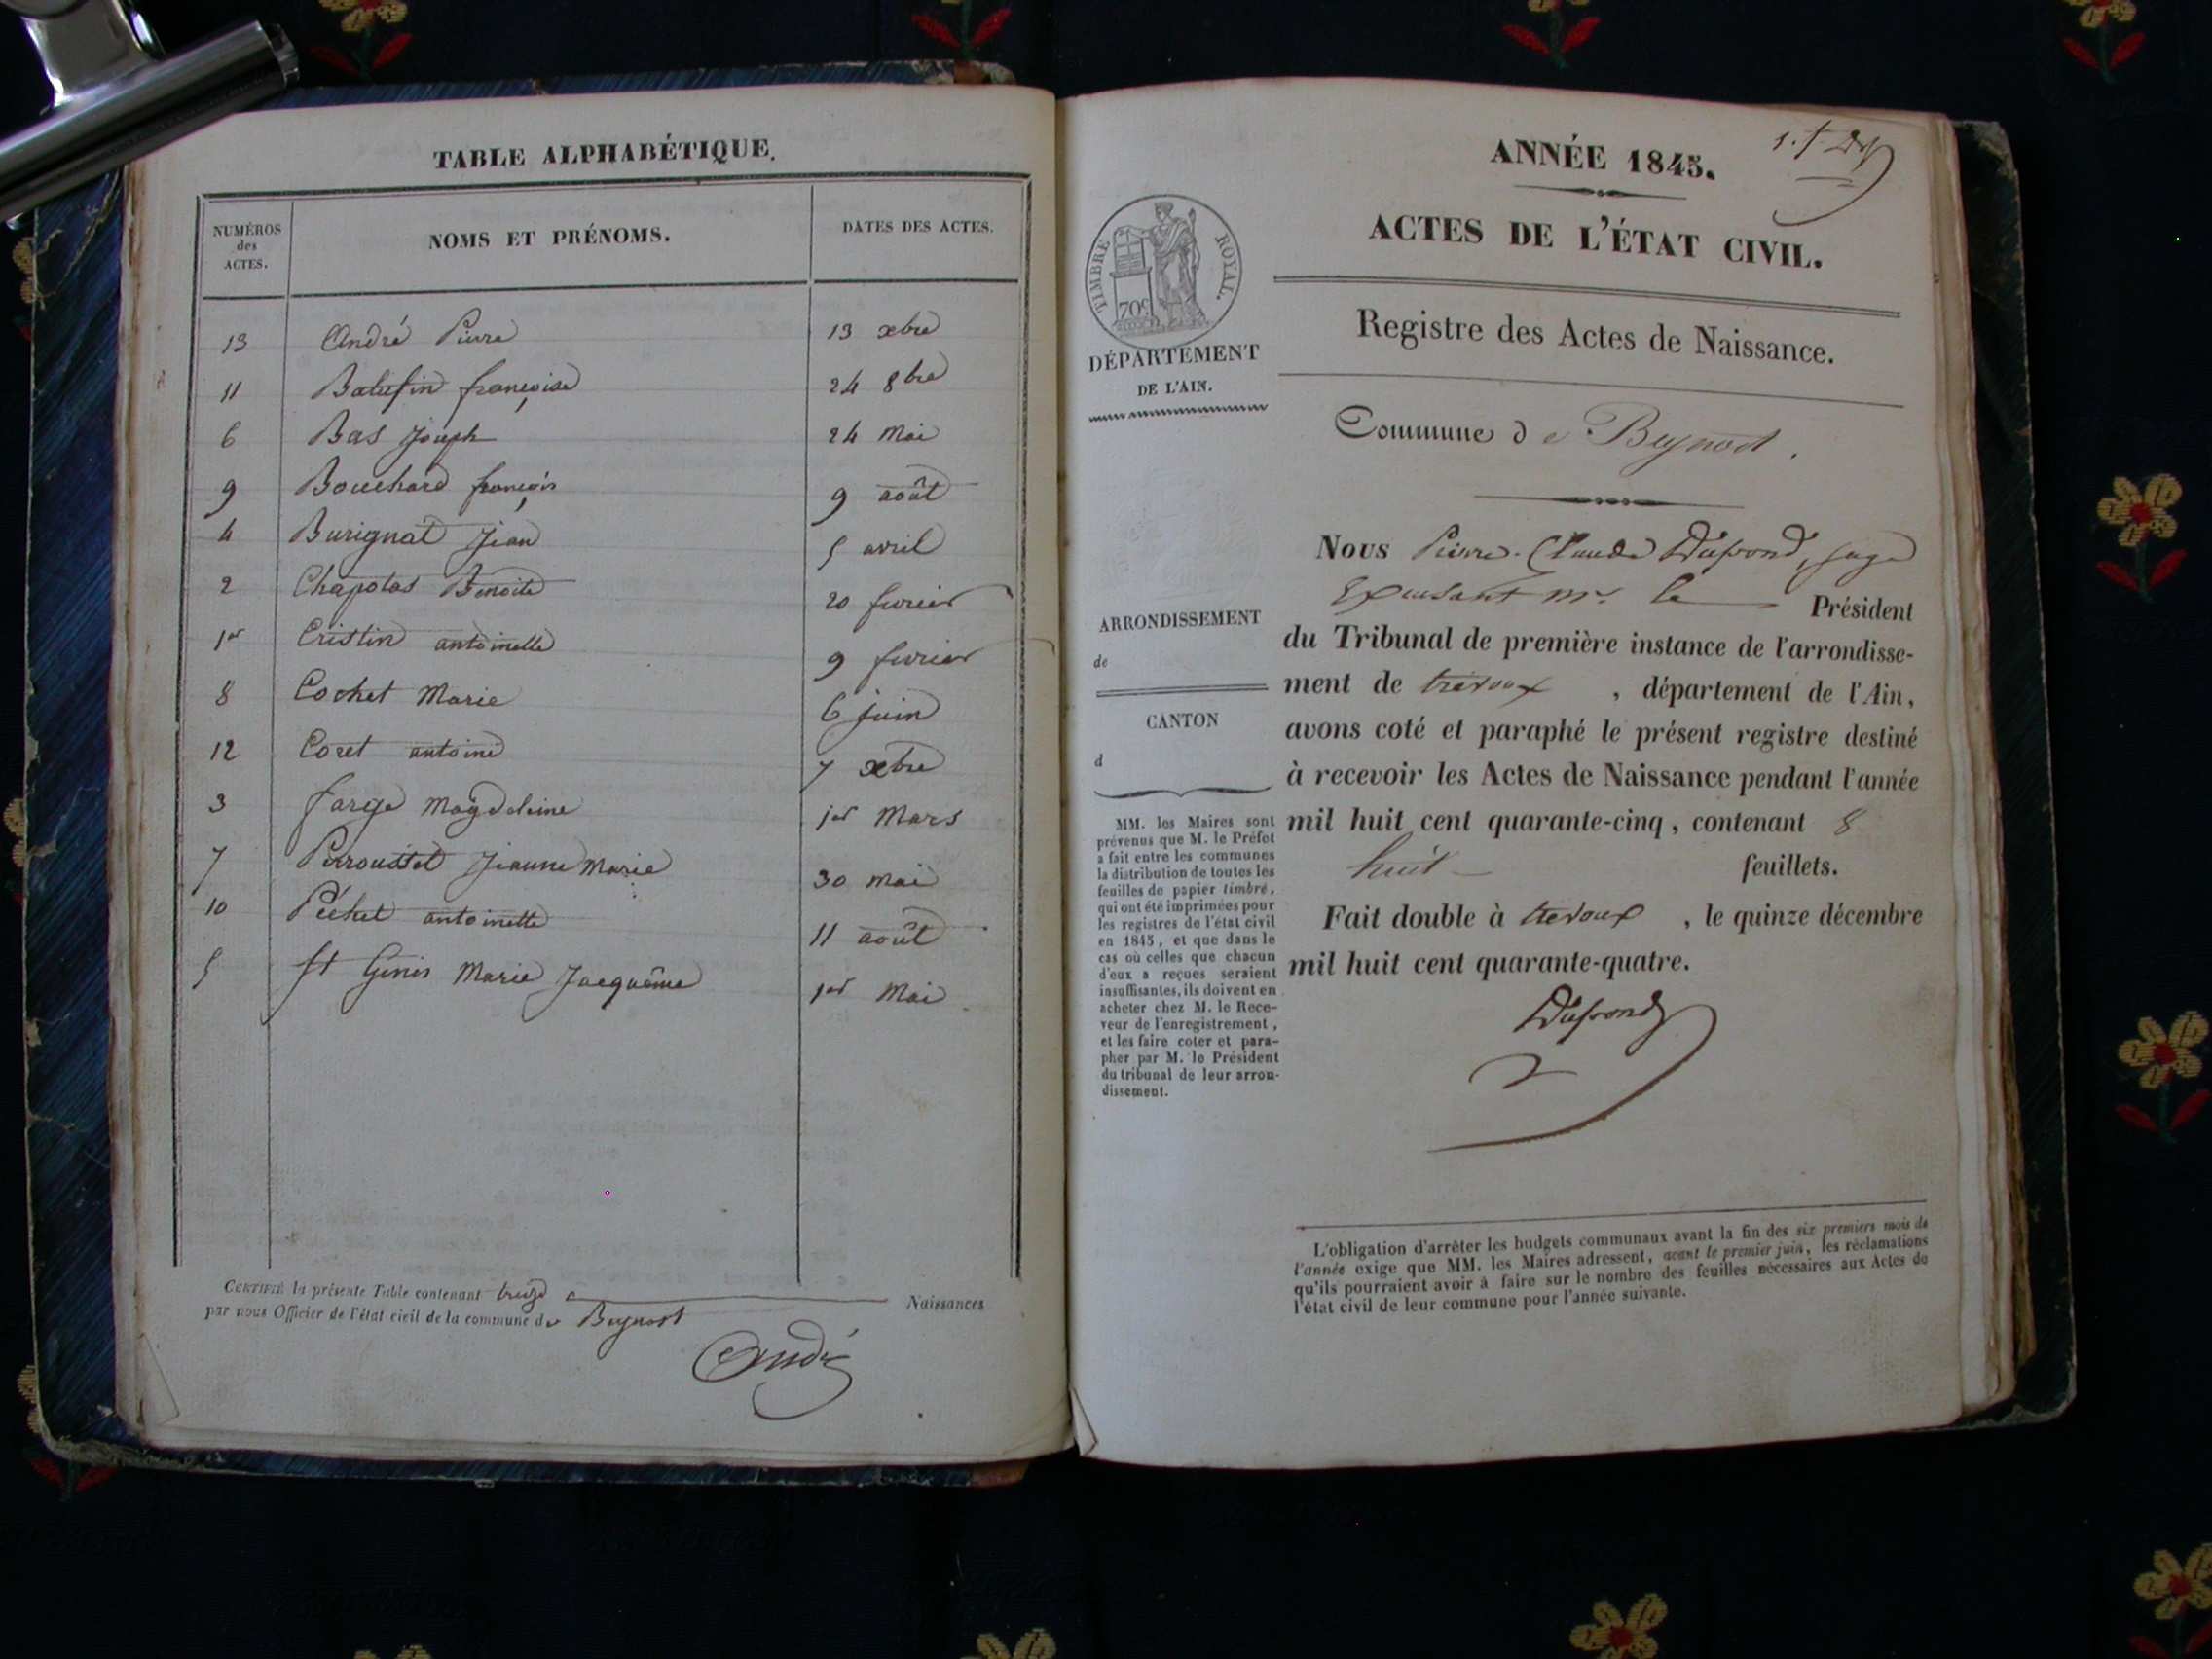 TABLE ALPHABÉTIQUE.
NUMÉROS des ACTES. NOMS ET PRÉNOMS. DATES DES ACTES.
13 André Pierre 13 xbre
11 françoise 24 8bre
6 Bas Joseph 24 Mai
9 Bouchard françois 9 août
4 Burignat Jean 5 avril
2 Chapolas Benoite 20 fevrier
1er Cristin antoinette 9 fevrier
8 Cochet Marie 6 juin
12 Coret antoine 7 xbre
3 farge Magdeleine 1er Mars
7 Perrousset Jeanne Marie 30 mai
10 Péchet antoinette 11 août
5 St Genis Marie Jacquême 1er Mai
CERTIFIÉ la présente Table contenant treize Naissances
par nous Officier de l'état civil de la commune de Beynost
André
ANNÉE 1845.
ACTES DE L'ÉTAT CIVIL.
TIMBRE ROYAL.
70c
DÉPARTEMENT
DE L'AIN.
Registre des Actes de Naissance.
Commune de Beynost.
ARRONDISSEMENT
de
CANTON
d
MM. les Maires sont
prévenus que M. le Préfet
a fait entre les communes
la distribution de toutes les
feuilles de papier timbré,
qui ont été imprimées pour
les registres de l'état civil
en 1845, et que dans le
cas où celles que chacun
d'eux a reçues seraient
insuffisantes, ils doivent en
acheter chez M. le Rece-
veur de l'enregistrement,
et les faire coter et para-
pher par M. le Président
du tribunal de leur arron-
dissement.
Nous Pierre-Claude juge
mr. le Président
du Tribunal de première instance de l'arrondisse-
ment de trévoux, département de l'Ain,
avons coté et paraphé le présent registre destiné
à recevoir les Actes de Naissance pendant l'année
mil huit cent quarante-cinq, contenant 8
huit feuillets.
Fait double à trevoux, le quinze décembre
mil huit cent quarante-quatre.
L'obligation d'arrêter les budgets communaux avant la fin des six premiers mois de
l'année exige que MM. les Maires adressent, avant le premier juin, les réclamations
qu'ils pourraient avoir à faire sur le nombre des feuilles nécessaires aux Actes de
l'état civil de leur commune pour l'année suivante.